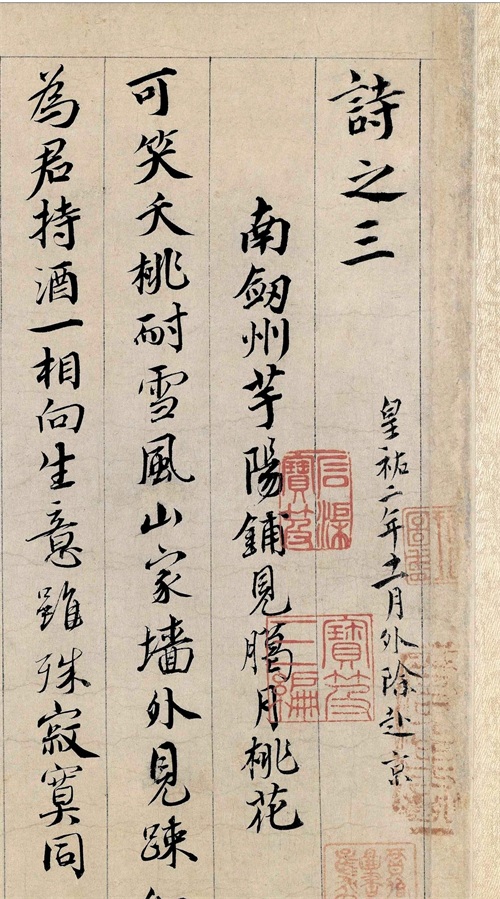 詩之三
皇祐二年十一月外除赴京
南劒州芋陽鋪見臈月桃花
可笑夭桃耐雪風山家墻外見踈
為君持酒一相向生意雖殊寂寞同
寶笈
三編